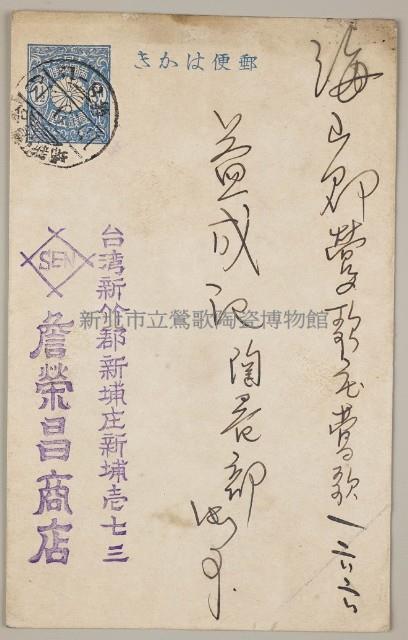 郵便はかき
海山郡鶯歌庄鶯歌一六六
益成記陶器部
台湾新竹郡新埔庄新埔壱七三
SEN
詹榮昌商店
新北市立鶯歌陶瓷博物館